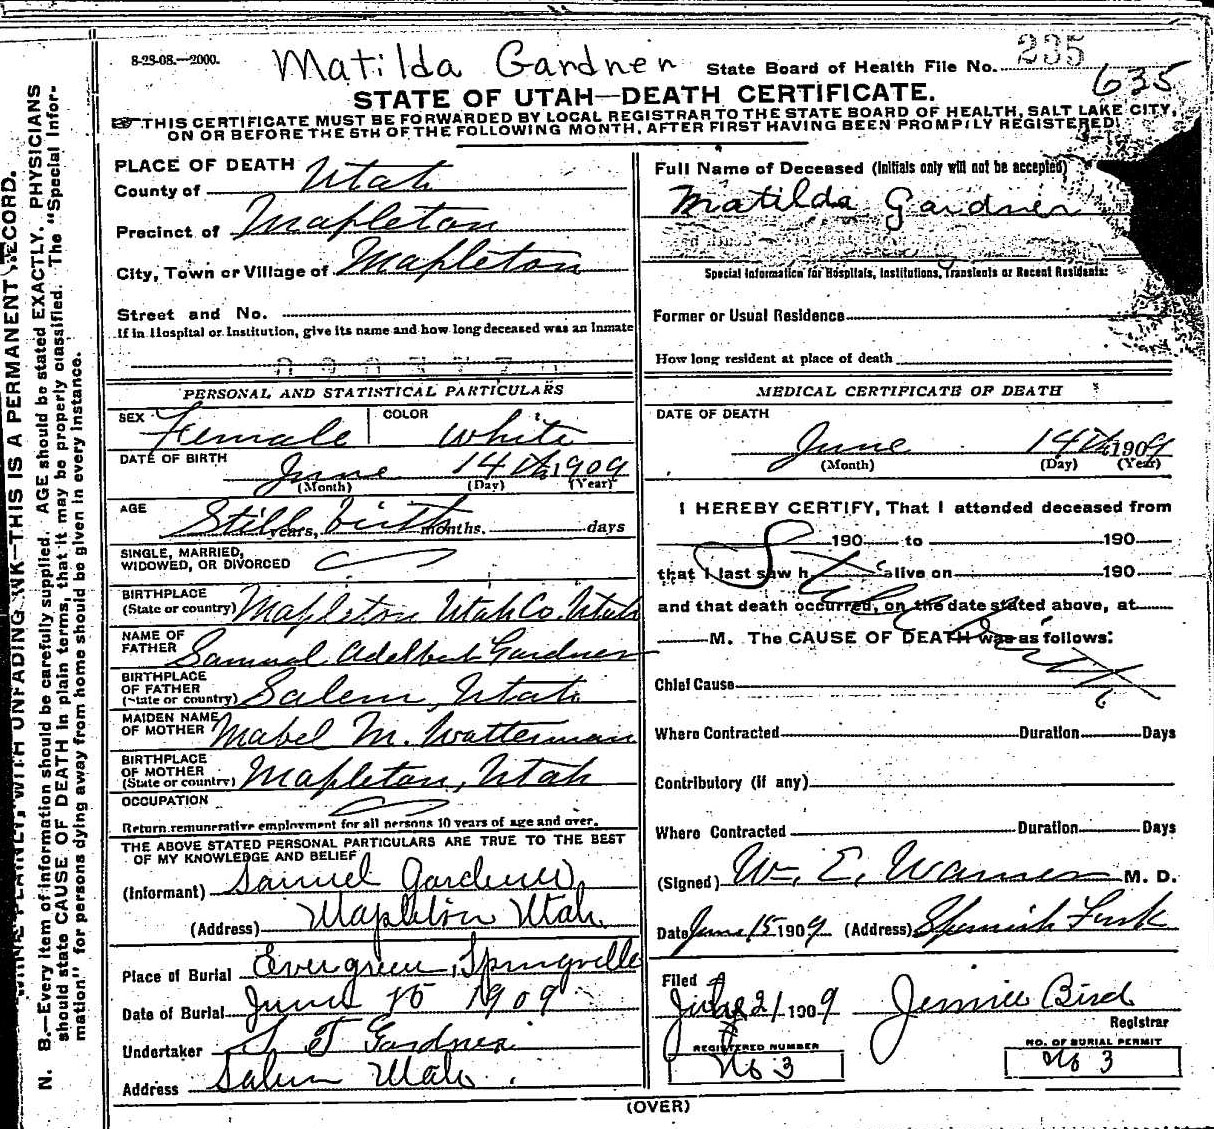 8-23-08.—2000.
Matilda Gardner
State Board of Health File No. 235
635
STATE OF UTAH—DEATH CERTIFICATE.
THIS CERTIFICATE MUST BE FORWARDED BY LOCAL REGISTRAR TO THE STATE BOARD OF HEALTH, SALT LAKE CITY,
ON OR BEFORE THE 5TH OF THE FOLLOWING MONTH, AFTER FIRST HAVING BEEN PROMPTLY REGISTERED.
N. B.—Every item of information should be carefully supplied. AGE should be stated EXACTLY. PHYSICIANS
should state CAUSE OF DEATH in plain terms, that it may be properly classified. The "Special Infor-
mation" for persons dying away from home should be given in every instance.
WITH UNFADING INK—THIS IS A PERMANENT RECORD.
PLACE OF DEATH
County of Utah
Precinct of Mapleton
City, Town or Village of Mapleton
Street and No.
If in Hospital or Institution, give its name and how long deceased was an Inmate
PERSONAL AND STATISTICAL PARTICULARS
SEX Female
COLOR White
DATE OF BIRTH
June 14th 1909
(Month) (Day) (Year)
AGE
Still birth
years, months. days
SINGLE, MARRIED,
WIDOWED, OR DIVORCED
BIRTHPLACE
(State or country) Mapleton Utah Co. Utah
NAME OF
FATHER Samuel Adelbert Gardner
BIRTHPLACE
OF FATHER
(State or country) Salem, Utah
MAIDEN NAME
OF MOTHER Mabel M. Watterman
BIRTHPLACE
OF MOTHER
(State or country) Mapleton, Utah
OCCUPATION
Return remunerative employment for all persons 10 years of age and over.
THE ABOVE STATED PERSONAL PARTICULARS ARE TRUE TO THE BEST
OF MY KNOWLEDGE AND BELIEF
(Informant) Samuel Gardner
(Address) Mapleton Utah.
Place of Burial Evergreen, Springville
Date of Burial June 15 1909
Undertaker S T Gardner
Address Salem Utah.
Full Name of Deceased (Initials only will not be accepted)
Matilda Gardner
Special Information for Hospitals, Institutions, Transients or Recent Residents:
Former or Usual Residence
How long resident at place of death
MEDICAL CERTIFICATE OF DEATH
DATE OF DEATH
June 14th 1909
(Month) (Day) (Year)
I HEREBY CERTIFY, That I attended deceased from
190 to 190
that I last saw h alive on 190
and that death occurred, on the date stated above, at
M. The CAUSE OF DEATH was as follows:
Still Birth
Chief Cause
Where Contracted Duration Days
Contributory (if any)
Where Contracted Duration Days
(Signed) W. E. Warner M. D.
Date June 15 1909 (Address) Spanish Fork
Filed
July 21 1909 Jennie Bird
Registrar
REGISTERED NUMBER
No 3
NO. OF BURIAL PERMIT
No 3
(OVER)